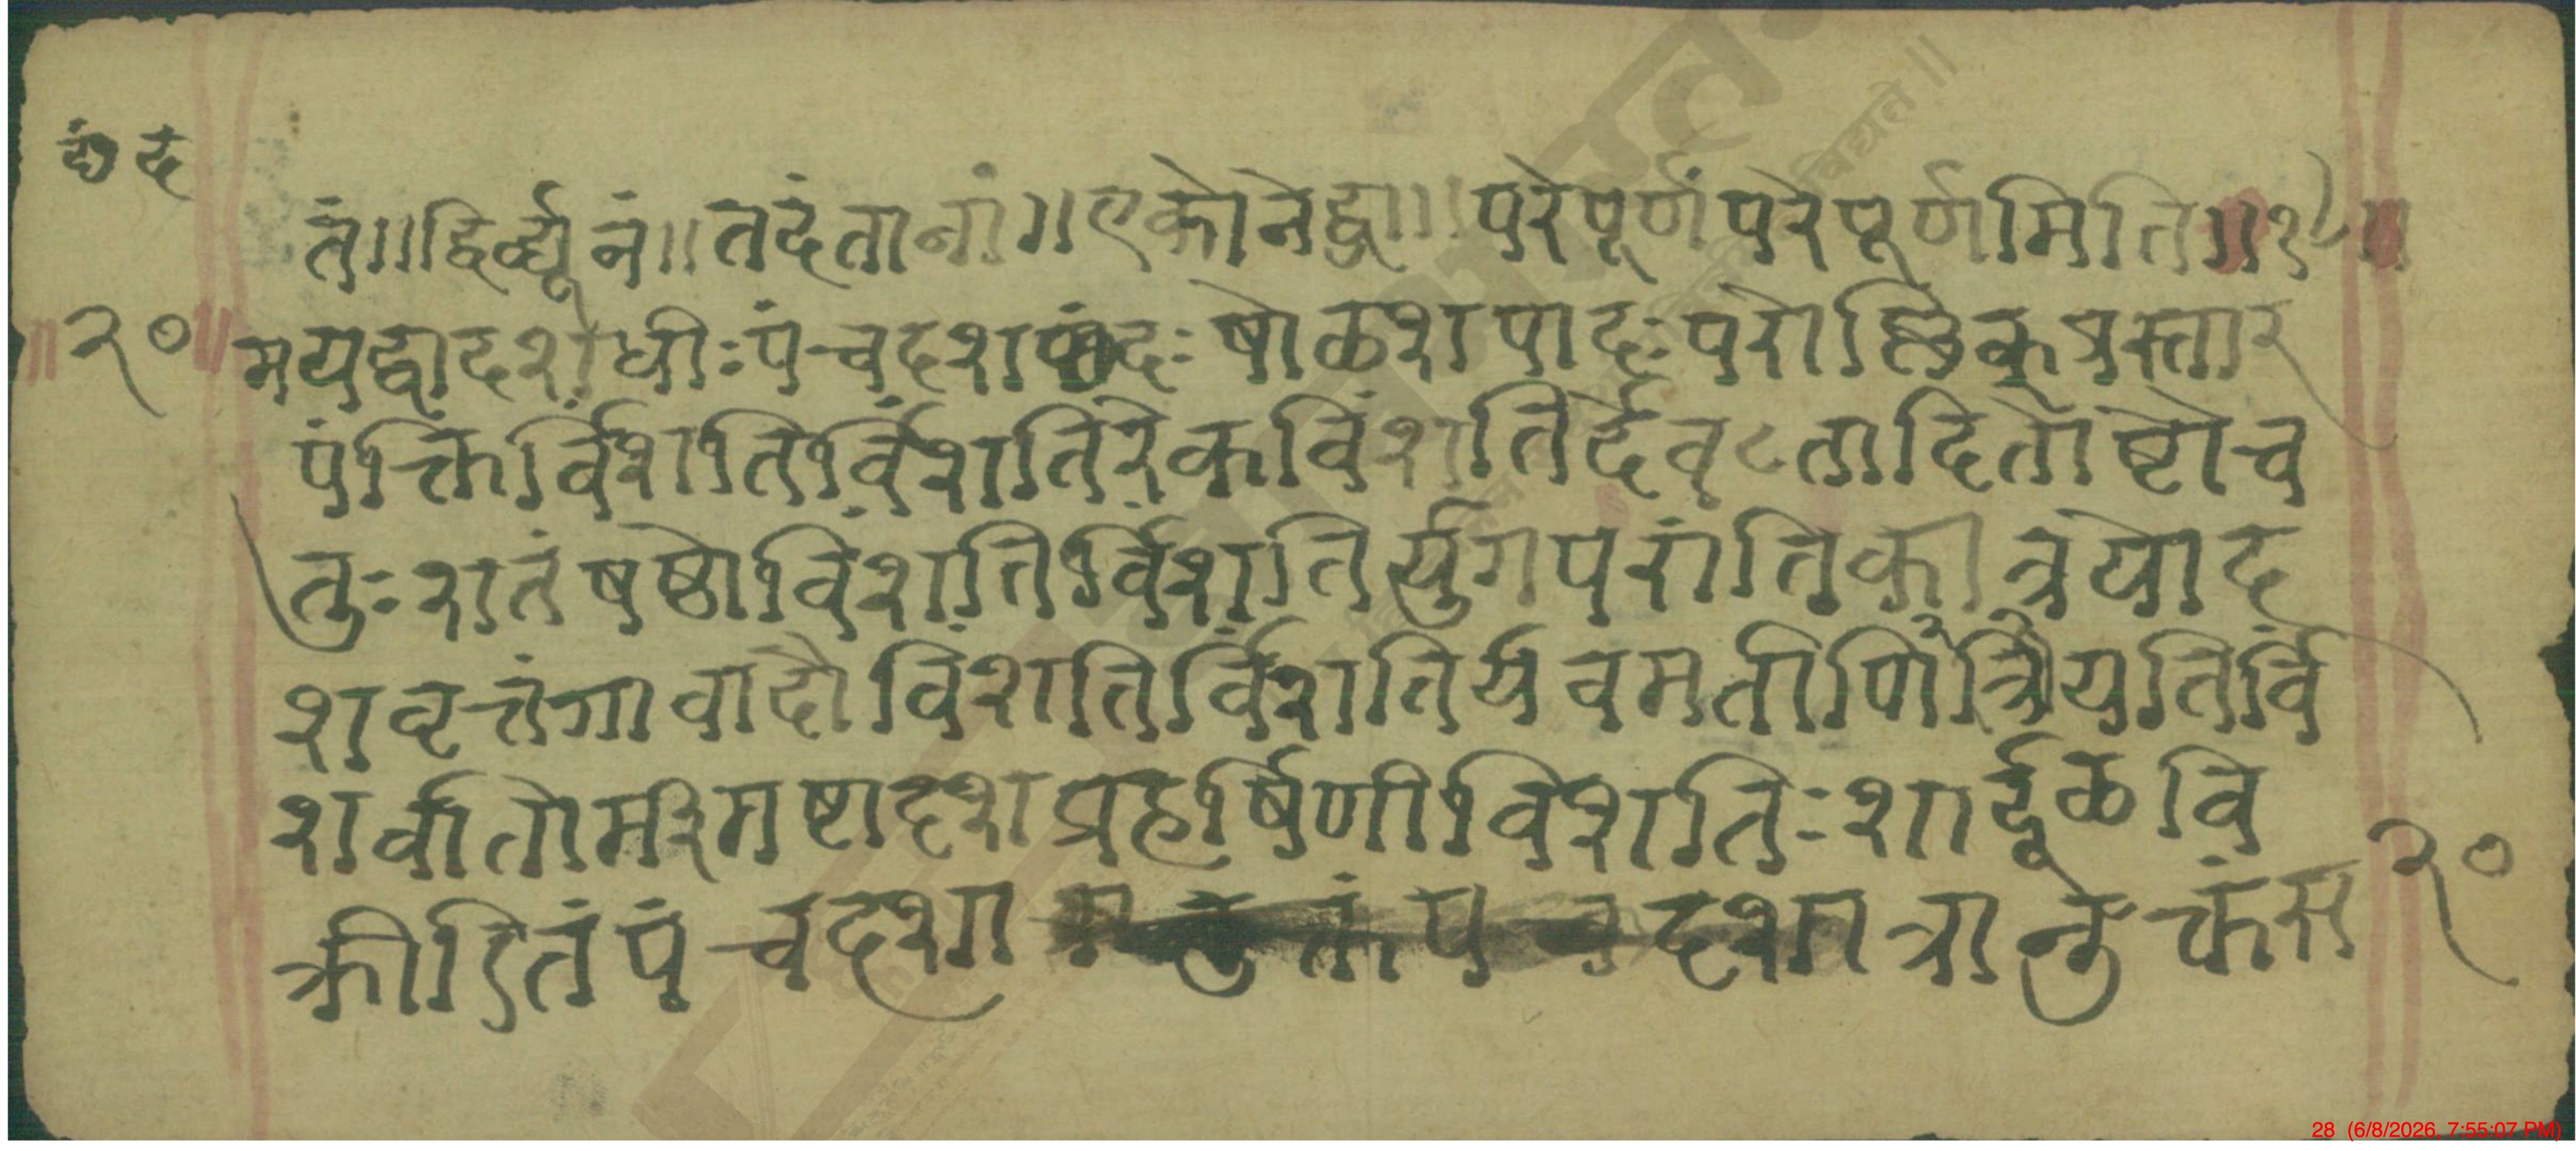 छं द
तं॥द्विर्द्व्यूनं॥तदंतानां॥एकोनेद्वा॥परेपूर्णंपरेपूर्णमिति॥१८॥
॥२०॥ मयद्वादशोधीःपंचदशपादःषोळशपादःपरोष्णिक्प्रस्तार
पंक्तिर्विंशतिर्विंशतिरेकविंशतिर्दैवृ८तादितोष्टौच
तुःशतंषष्ठोविंशतिर्विंशतिर्युगपरांतिकात्रयोद
शवृत्तंगावादौविंशतिर्विंशतिर्यवमतीणित्रियतिर्विं
शर्वातोमरमष्टादशप्रहर्षिणीविंशतिःशार्दूळवि
क्रीडितंपंचदशा दशात्रानुक्तंस
२०
28 (6/8/2026, 7:55:07 PM)